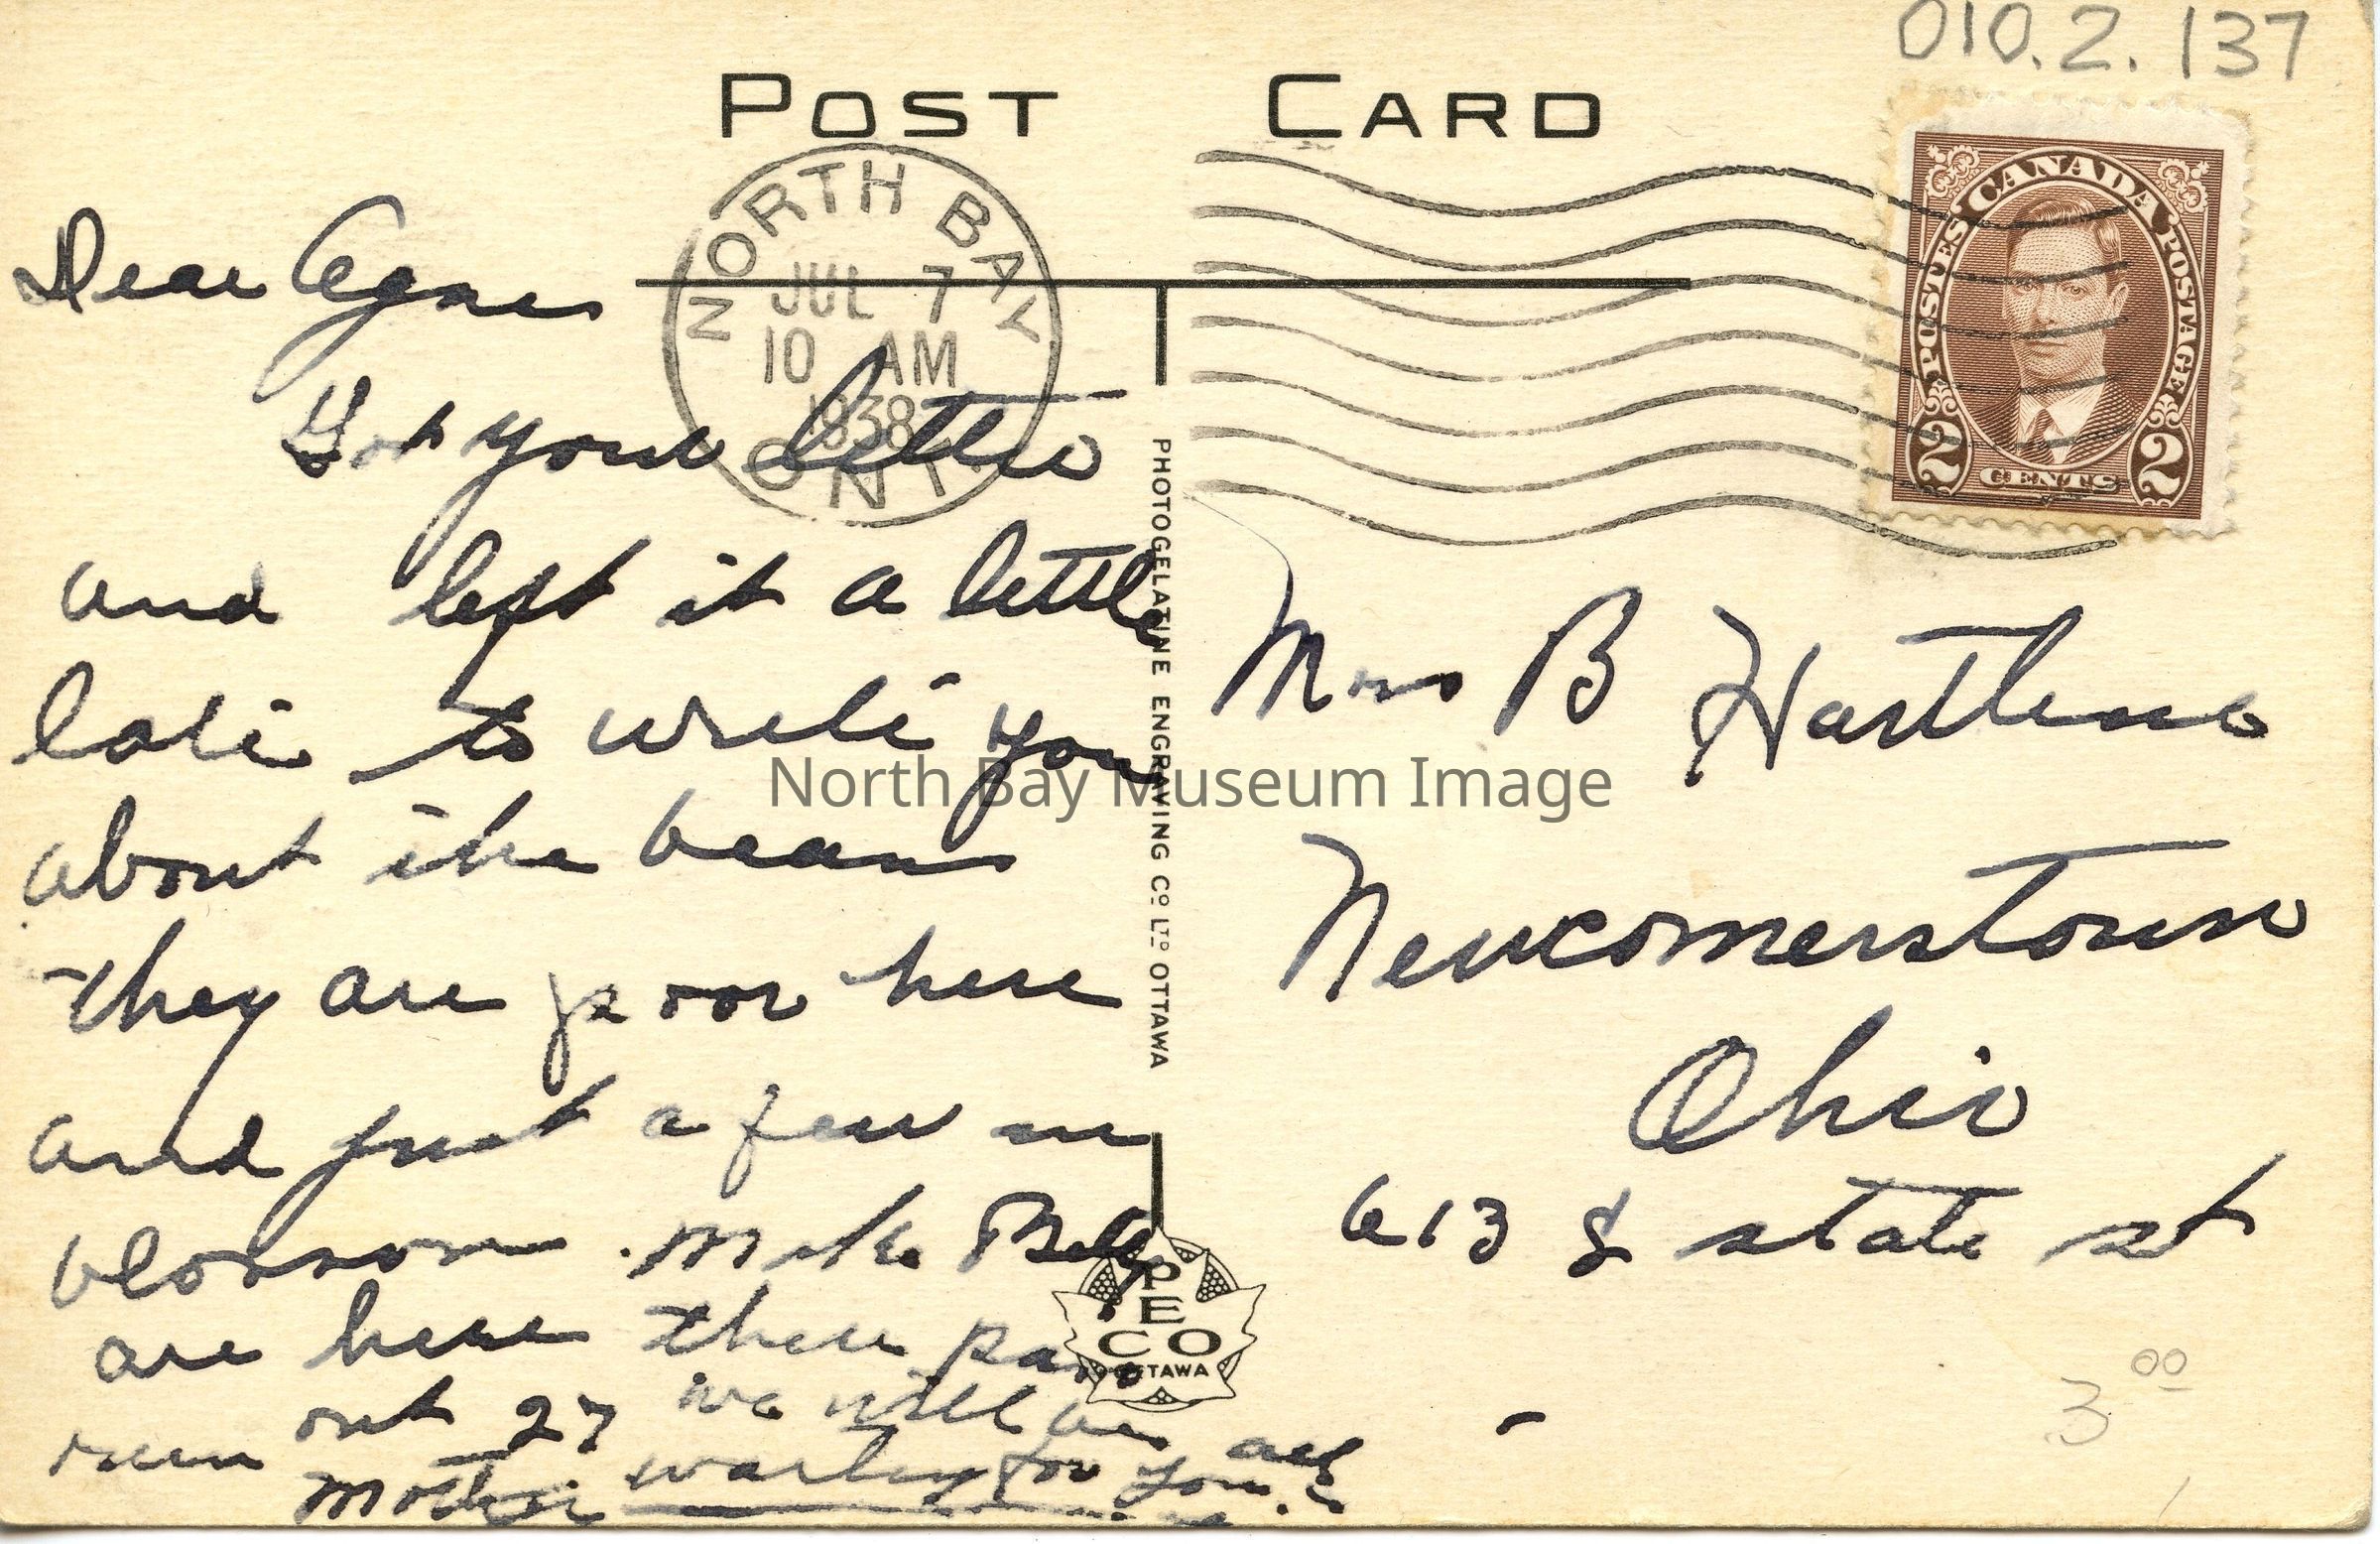 010.2.137
POST CARD
NORTH BAY
JUL 7
10 AM
1938
ONT.
CANADA
POSTES POSTAGE
2 CENTS 2
Dear Agnes
Got your letter
and left it a little
late to write you
about the beans
they are poor here
and just a few in
blossom. Mike
are here their
run out 27 we will be all
Mother waiting for you.
PHOTOGELATINE ENGRAVING CO LTD OTTAWA
PECO
OTTAWA
Mrs B Hartline
Newcomerstown
Ohio
613 S state st
3 00
North Bay Museum Image